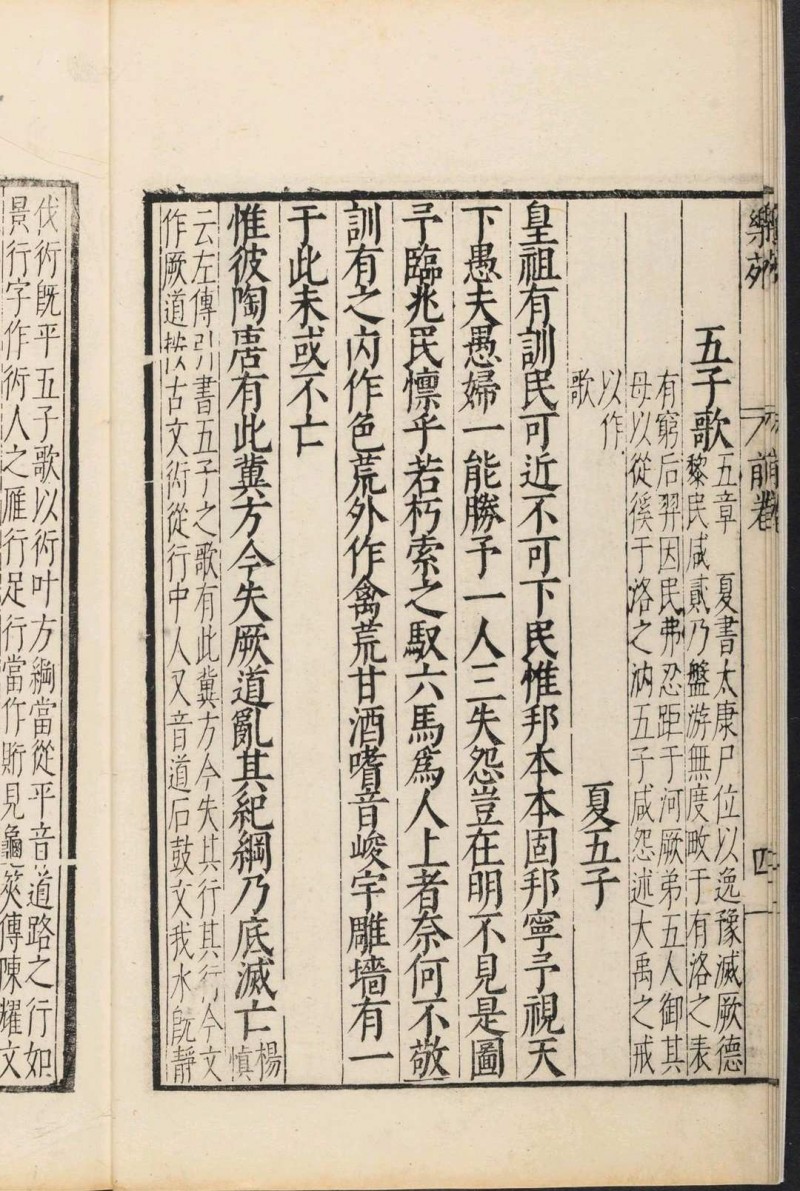 樂苑 前卷 四
五子歌 五章 夏書太康尸位以逸豫滅厥德
黎民咸貳乃盤游無度畋于有洛之表
有窮后羿因民弗忍距于河厥弟五人御其
母以從徯于洛之汭五子咸怨述大禹之戒
以作
歌
夏五子
皇祖有訓民可近不可下民惟邦本本固邦寧予視天
下愚夫愚婦一能勝予一人三失怨豈在明不見是圖
予臨兆民懍乎若朽索之馭六馬爲人上者奈何不敬
訓有之内作色荒外作禽荒甘酒嗜音峻宇雕墻有一
于此未或不亡
惟彼陶唐有此冀方今失厥道亂其紀綱乃底滅亡 楊
慎
云左傳引書五子之歌有此冀方今失其行其行今文
作厥道 古文術從行中人又音道石鼓文我水旣靜
伐術旣平五子歌以術叶方綱當從平音道路之行如
景行字作術人之雁行足行當作䯒見龜筴傳陳耀文